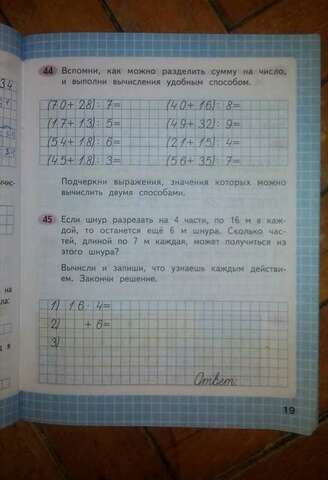 44 Вспомни, как можно разделить сумму на число,
и выполни вычисления удобным способом.
(70+28):7= (40+16):8=
(17+13):5= (49+32):9=
(54+18):6= (21+15):4=
(45+18):3= (56+35):7=
Подчеркни выражения, значения которых можно
вычислить двумя способами.
45 Если шнур разрезать на 4 части, по 16 м в каж-
дой, то останется ещё 6 м шнура. Сколько час-
тей, длиной по 7 м каждая, может получиться из
этого шнура?
Вычисли и запиши, что узнаешь каждым действи-
ем. Закончи решение.
1) 16·4=
2) +6=
3)
Ответ:
19